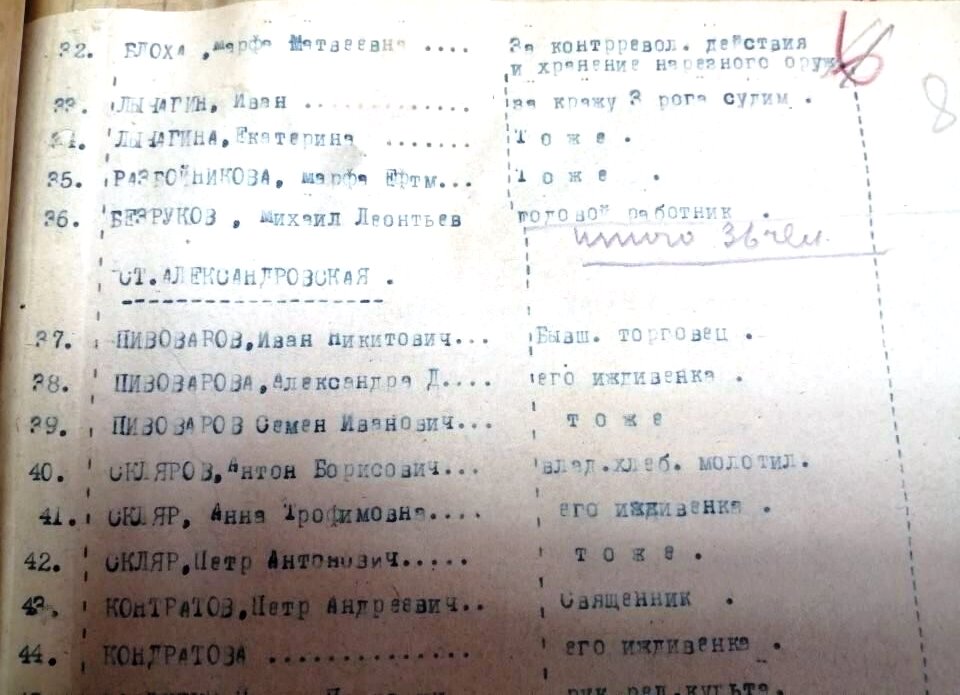 32. БЛОХА, Марфа Матвеевна .... За контрревол. действия
и хранение нарезного оруж
33. ЛЫЧАГИН, Иван ............. за кражу 3 рога судим .
34. ЛЫЧАГИНА, Екатерина ....... Т о ж е .
35. РАЗБОЙНИКОВА, Марфа Ефтм... Т о ж е .
36. БЕЗРУКОВ , Михаил Леонтьев работник .
итого 36 чел.
8
СТ.АЛЕКСАНДРОВСКАЯ .
37. ПИВОВАРОВ,Иван Никитович... Бывш. торговец .
38. ПИВОВАРОВА,Александра Д.... его иждивенка .
39. ПИВОВАРОВ Семен Иванович... т о ж е
40. СКЛЯРОВ,Антон Борисович... влад.хлеб. молотил.
41. СКЛЯР, Анна Трофимовна.... его иждивенка .
42. СКЛЯР,Петр Антонович..... т о ж е .
43. КОНТРАТОВ,Петр Андреевич.. Священник .
44. КОНДРАТОВА .............. его иждивенка .
рук.рел.культа.